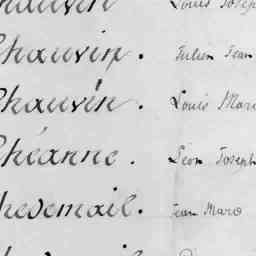 hauvin Louis Joseph
Chauvin. Julien Jean
Chauvin. Louis Mari
Chéanne. Léon Joseph
hedemail. Jean Marc